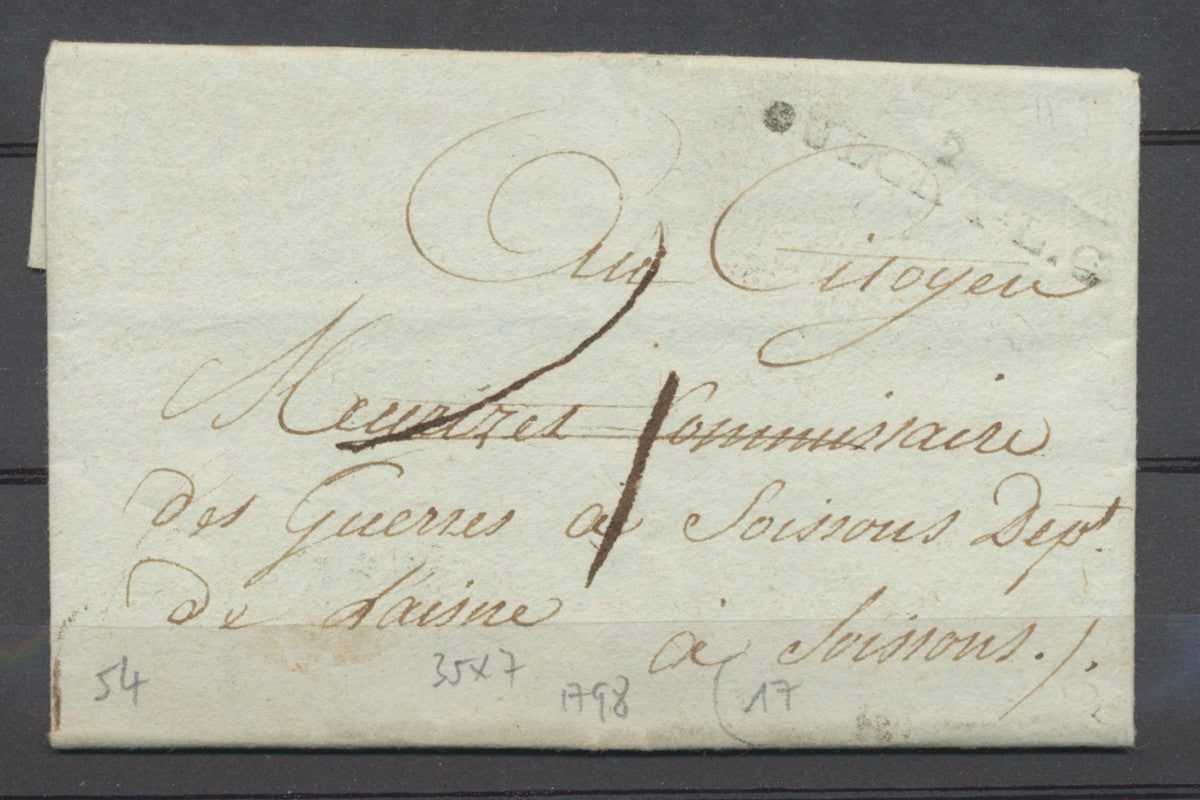 2
Au Citoyen
Meurizet Commissaire
des Guerres a Soissons Dept.
de Laisne
a Soissons.
54
35x7
1798
17